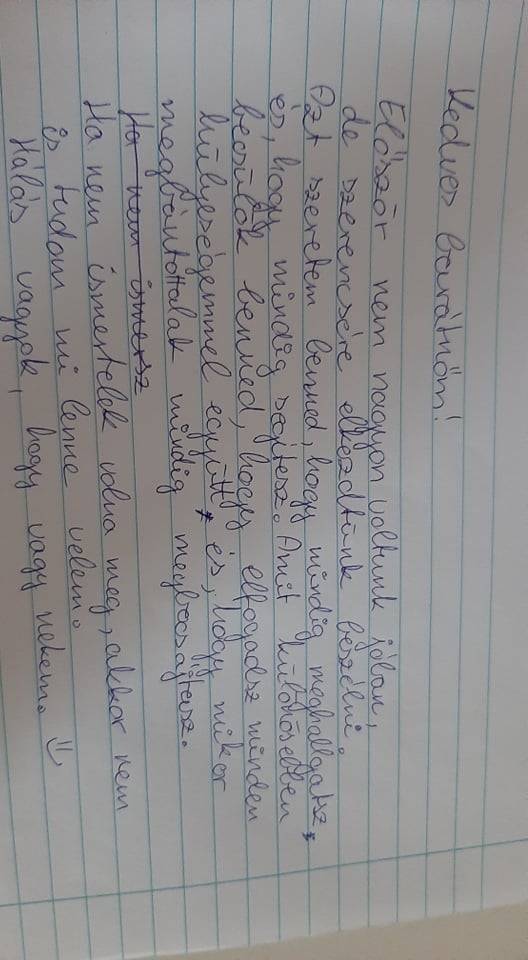 Kedves barátnőm!
Először nem nagyon voltunk jóban,
de szerencsére elkezdtünk beszélni.
Azt szeretem benned, hogy mindig meghallgatsz,
és, hogy mindig segítesz. Amit különösebben
becsülök benned, hogy elfogadsz minden
hülyeségemmel együtt, és, hogy mikor
megbántottalak mindig megbocsájtasz.
Ha nem ismersz
Ha nem ismertelek volna meg, akkor nem
is tudom mi lenne velem.
Hálás vagyok, hogy vagy nekem. :)